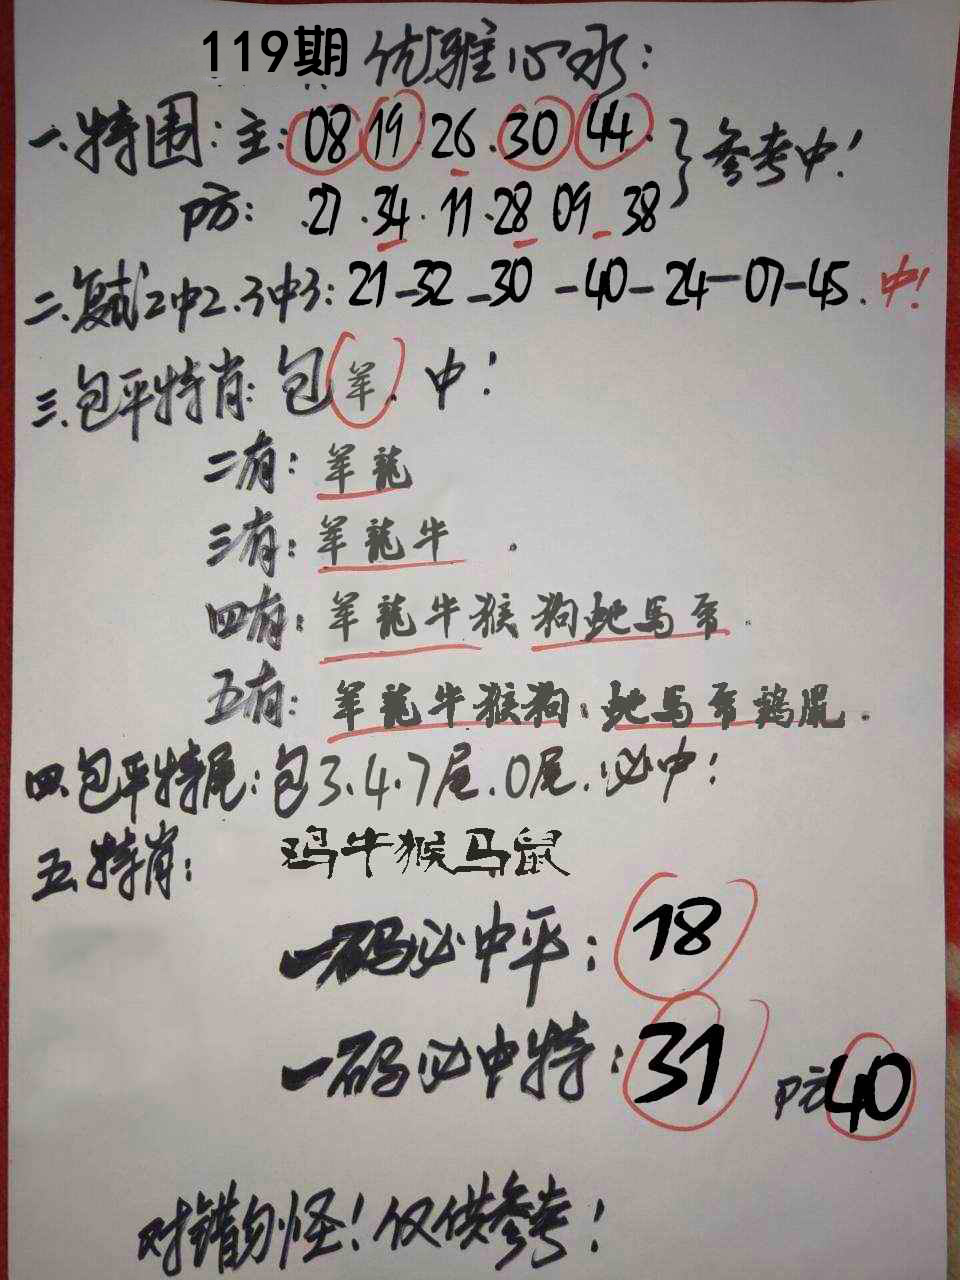 119期优雅心水:
一.特围:主:08 19·26·30 44·
防:·27·34·11·28 09 38
}参考中!
二.复式2中2.3中3:21-32-30-40-24-07-45.中!
三.包平特肖:包羊.中!
二有:羊龍
三有:羊龍牛.
四有:羊龍牛猴狗蛇馬兔.
五有:羊龍牛猴狗蛇馬兔鷄鼠.
四.包平特尾:包3.4.7尾.0尾.必中!
五.特肖:鸡牛猴马鼠
一码必中平:18
一码必中特:31 防40
对错勿怪!仅供参考!